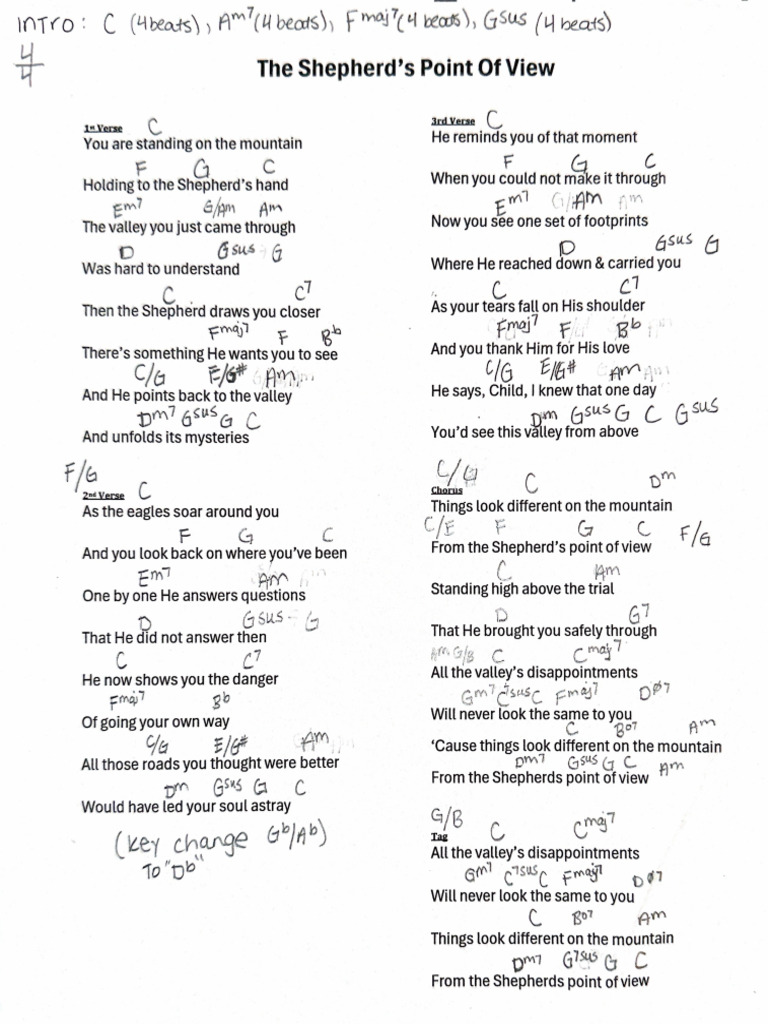 INTRO: C (4 beats), Am7 (4 beats), Fmaj7 (4 beats), Gsus (4 beats)
4/4
The Shepherd's Point Of View
1st Verse C
You are standing on the mountain
F G C
Holding to the Shepherd's hand
Em7 G/Am Am
The valley you just came through
D Gsus G
Was hard to understand
C C7
Then the Shepherd draws you closer
Fmaj7 F Bb
There's something He wants you to see
C/G E/G# Am
And He points back to the valley
Dm7 Gsus G C
And unfolds its mysteries
F/G
2nd Verse C
As the eagles soar around you
F G C
And you look back on where you've been
Em7 Am
One by one He answers questions
D Gsus G
That He did not answer then
C C7
He now shows you the danger
Fmaj7 Bb
Of going your own way
C/G E/G# Am
All those roads you thought were better
Dm Gsus G C
Would have led your soul astray
(Key change Gb/Ab)
To "Db"
3rd Verse C
He reminds you of that moment
F G C
When you could not make it through
Em7 Am
Now you see one set of footprints
D Gsus G
Where He reached down & carried you
C C7
As your tears fall on His shoulder
Fmaj7 F Bb
And you thank Him for His love
C/G E/G# Am
He says, Child, I knew that one day
Dm Gsus G C Gsus
You'd see this valley from above
C/G
Chorus C Dm
Things look different on the mountain
C/E F G C F/G
From the Shepherd's point of view
C Am
Standing high above the trial
D G7
That He brought you safely through
Am G/B C Cmaj7
All the valley's disappointments
Gm7 C7sus C Fmaj7 Dø7
Will never look the same to you
C Bo7 Am
‘Cause things look different on the mountain
Dm7 Gsus G C Am
From the Shepherds point of view
G/B
Tag C Cmaj7
All the valley's disappointments
Gm7 C7sus C Fmaj7 Dø7
Will never look the same to you
C Bo7 Am
Things look different on the mountain
Dm7 G7sus G C
From the Shepherds point of view